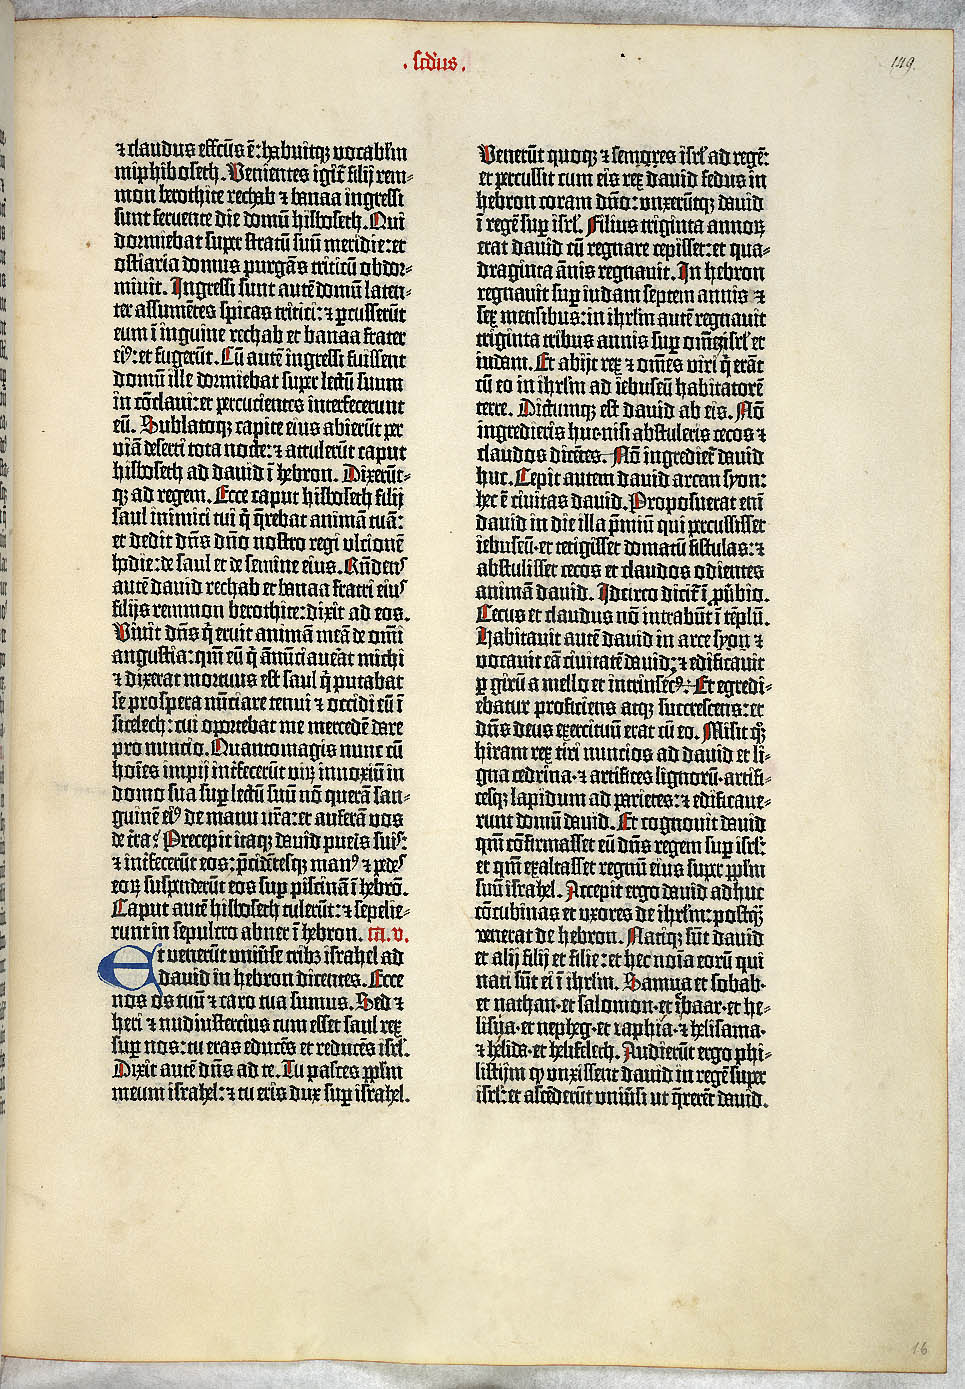 .scdus.
149.
⁊ claudus effectꝰ ē: habuitqꝫ vocablm
miphiboseth. Venientes igit̃ filij rem-
mon berothite rechab ⁊ banaa ingressi
sunt feruente die domū hisboseth. Qui
dormiebat super stratū suū meridie: et
ostiaria domus purgās triticū obdor-
miuit. Ingressi sunt autē domū laten-
ter assumētes spicas tritici: ⁊ ꝑcusserūt
eum ī inguine rechab et banaa frater
eiꝰ: et fugerūt. Cū autē ingressi fuissent
domū ille dormiebat super lectū suum
in cōclaui: et percucientes interfecerunt
eū. Sublatoqꝫ capite eius abierūt per
viā deserti tota nocte: ⁊ attulerūt caput
hisboseth ad dauid ī hebron. Dixerūt-
qꝫ ad regem. Ecce caput hisboseth filij
saul inimici tui q̄ q̄rebat animā tuā:
et dedit dn̄s dn̄o nostro regi vlcionē
hodie: de saul et de semine eius. Rn̄dens
autē dauid rechab et banaa fratri eiꝰ
filijs remmon berothite: dixit ad eos.
Viuit dn̄s q̄ eruit animā meā de om̄i
angustia: qm̄ eū q̄ ānūciauerat michi
⁊ dixerat mortuus est saul q̄ putabat
se prospera nūciare tenui ⁊ occidi eū ī
sicelech: cui oportebat me mercedē dare
pro nuncio. Quantomagis nunc cū
hoīes impij int̃fecerūt virū innoxiū in
domo sua suꝑ lectū suū nō querā san-
guinē eiꝰ de manu vr̄a: et auferā vos
de tr̄a? Precepit itaqꝫ dauid pueris suis:
⁊ int̃fecerūt eos: p̄cidētesqꝫ manꝰ ⁊ pedes
eoꝝ suspenderūt eos suꝑ piscinā ī hebrō.
Caput autē hisboseth tulerūt: ⁊ sepelie-
runt in sepulcro abner ī hebron. ca. v.
Et venerūt vniūse tribꝫ israhel ad
dauid in hebron dicentes. Ecce
nos os tuū ⁊ caro tua sumus. Sed ⁊
heri ⁊ nudiustercius cum esset saul rex
suꝑ nos: tu eras educēs et reducēs isrl.
Dixit autē dn̄s ad te. Tu pasces pplm
meum israhel: ⁊ tu eris dux suꝑ israhel.
Venerūt quoqꝫ ⁊ seniores isrl ad regē:
et percussit cum eis rex dauid fedus in
hebron coram dn̄o: vnxerūtqꝫ dauid
ī regē suꝑ isrl. Filius triginta annoꝝ
erat dauid cū regnare cepisset: et qua-
draginta ānis regnauit. In hebron
regnauit suꝑ iudam septem annis ⁊
sex mensibus: in ihrlm autē regnauit
triginta tribus annis suꝑ om̄eꝫ isrl et
iudam. Et abijt rex ⁊ om̄es viri q̄ erāt
cū eo in ihrlm ad iebuseū habitatorē
terre. Dictumqꝫ est dauid ab eis. Nō
ingredieris huc·nisi abstuleris cecos ⁊
claudos dicētes. Nō ingrediet̃ dauid
huc. Cepit autem dauid arcem syon:
hec ē ciuitas dauid. Proposuerat eni
dauid in die illa p̄miū qui percussisset
iebuseū·et tetigisset domatū fistulas: ⁊
abstulisset cecos et claudos odientes
animā dauid. Idcirco dicit̃ ī ꝓūbio.
Cecus et claudus nō intrabūt ī tēplū.
Habitauit autē dauid in arce syon ⁊
vocauit eā ciuitatē dauid: ⁊ edificauit
ꝑ girū a mello et intrinsecꝰ. Et egredi-
ebatur proficiens atqꝫ succrescens: et
dn̄s deus exercituū erat cū eo. Misit qꝫ
hiram rex tiri nuncios ad dauid et li-
gna cedrina·⁊ artifices lignorū·artifi-
cesqꝫ lapidum ad parietes: ⁊ edificaue-
runt domū dauid. Et cognouit dauid
qm̄ cōfirmasset eū dn̄s regem suꝑ isrl:
et qm̄ exaltasset regnū eius super pplm
suū israhel. Accepit ergo dauid adhuc
cōcubinas et vxores de ihrlm: postqꝫ
venerat de hebron. Natiqꝫ sūt dauid
et alij filij et filie: et hec noīa eorū qui
nati sūt ei ī ihrlm. Samua et sobab·
et nathan·et salomon·et ibaar·et he-
lisua·et nepheg·et raphia·⁊ helisama·
⁊ helida·et helifelech. Audierūt ergo phi-
listijm ꝙ vnxissent dauid in regē super
isrl: et ascēderūt vniūsi ut q̄rerēt dauid.
16